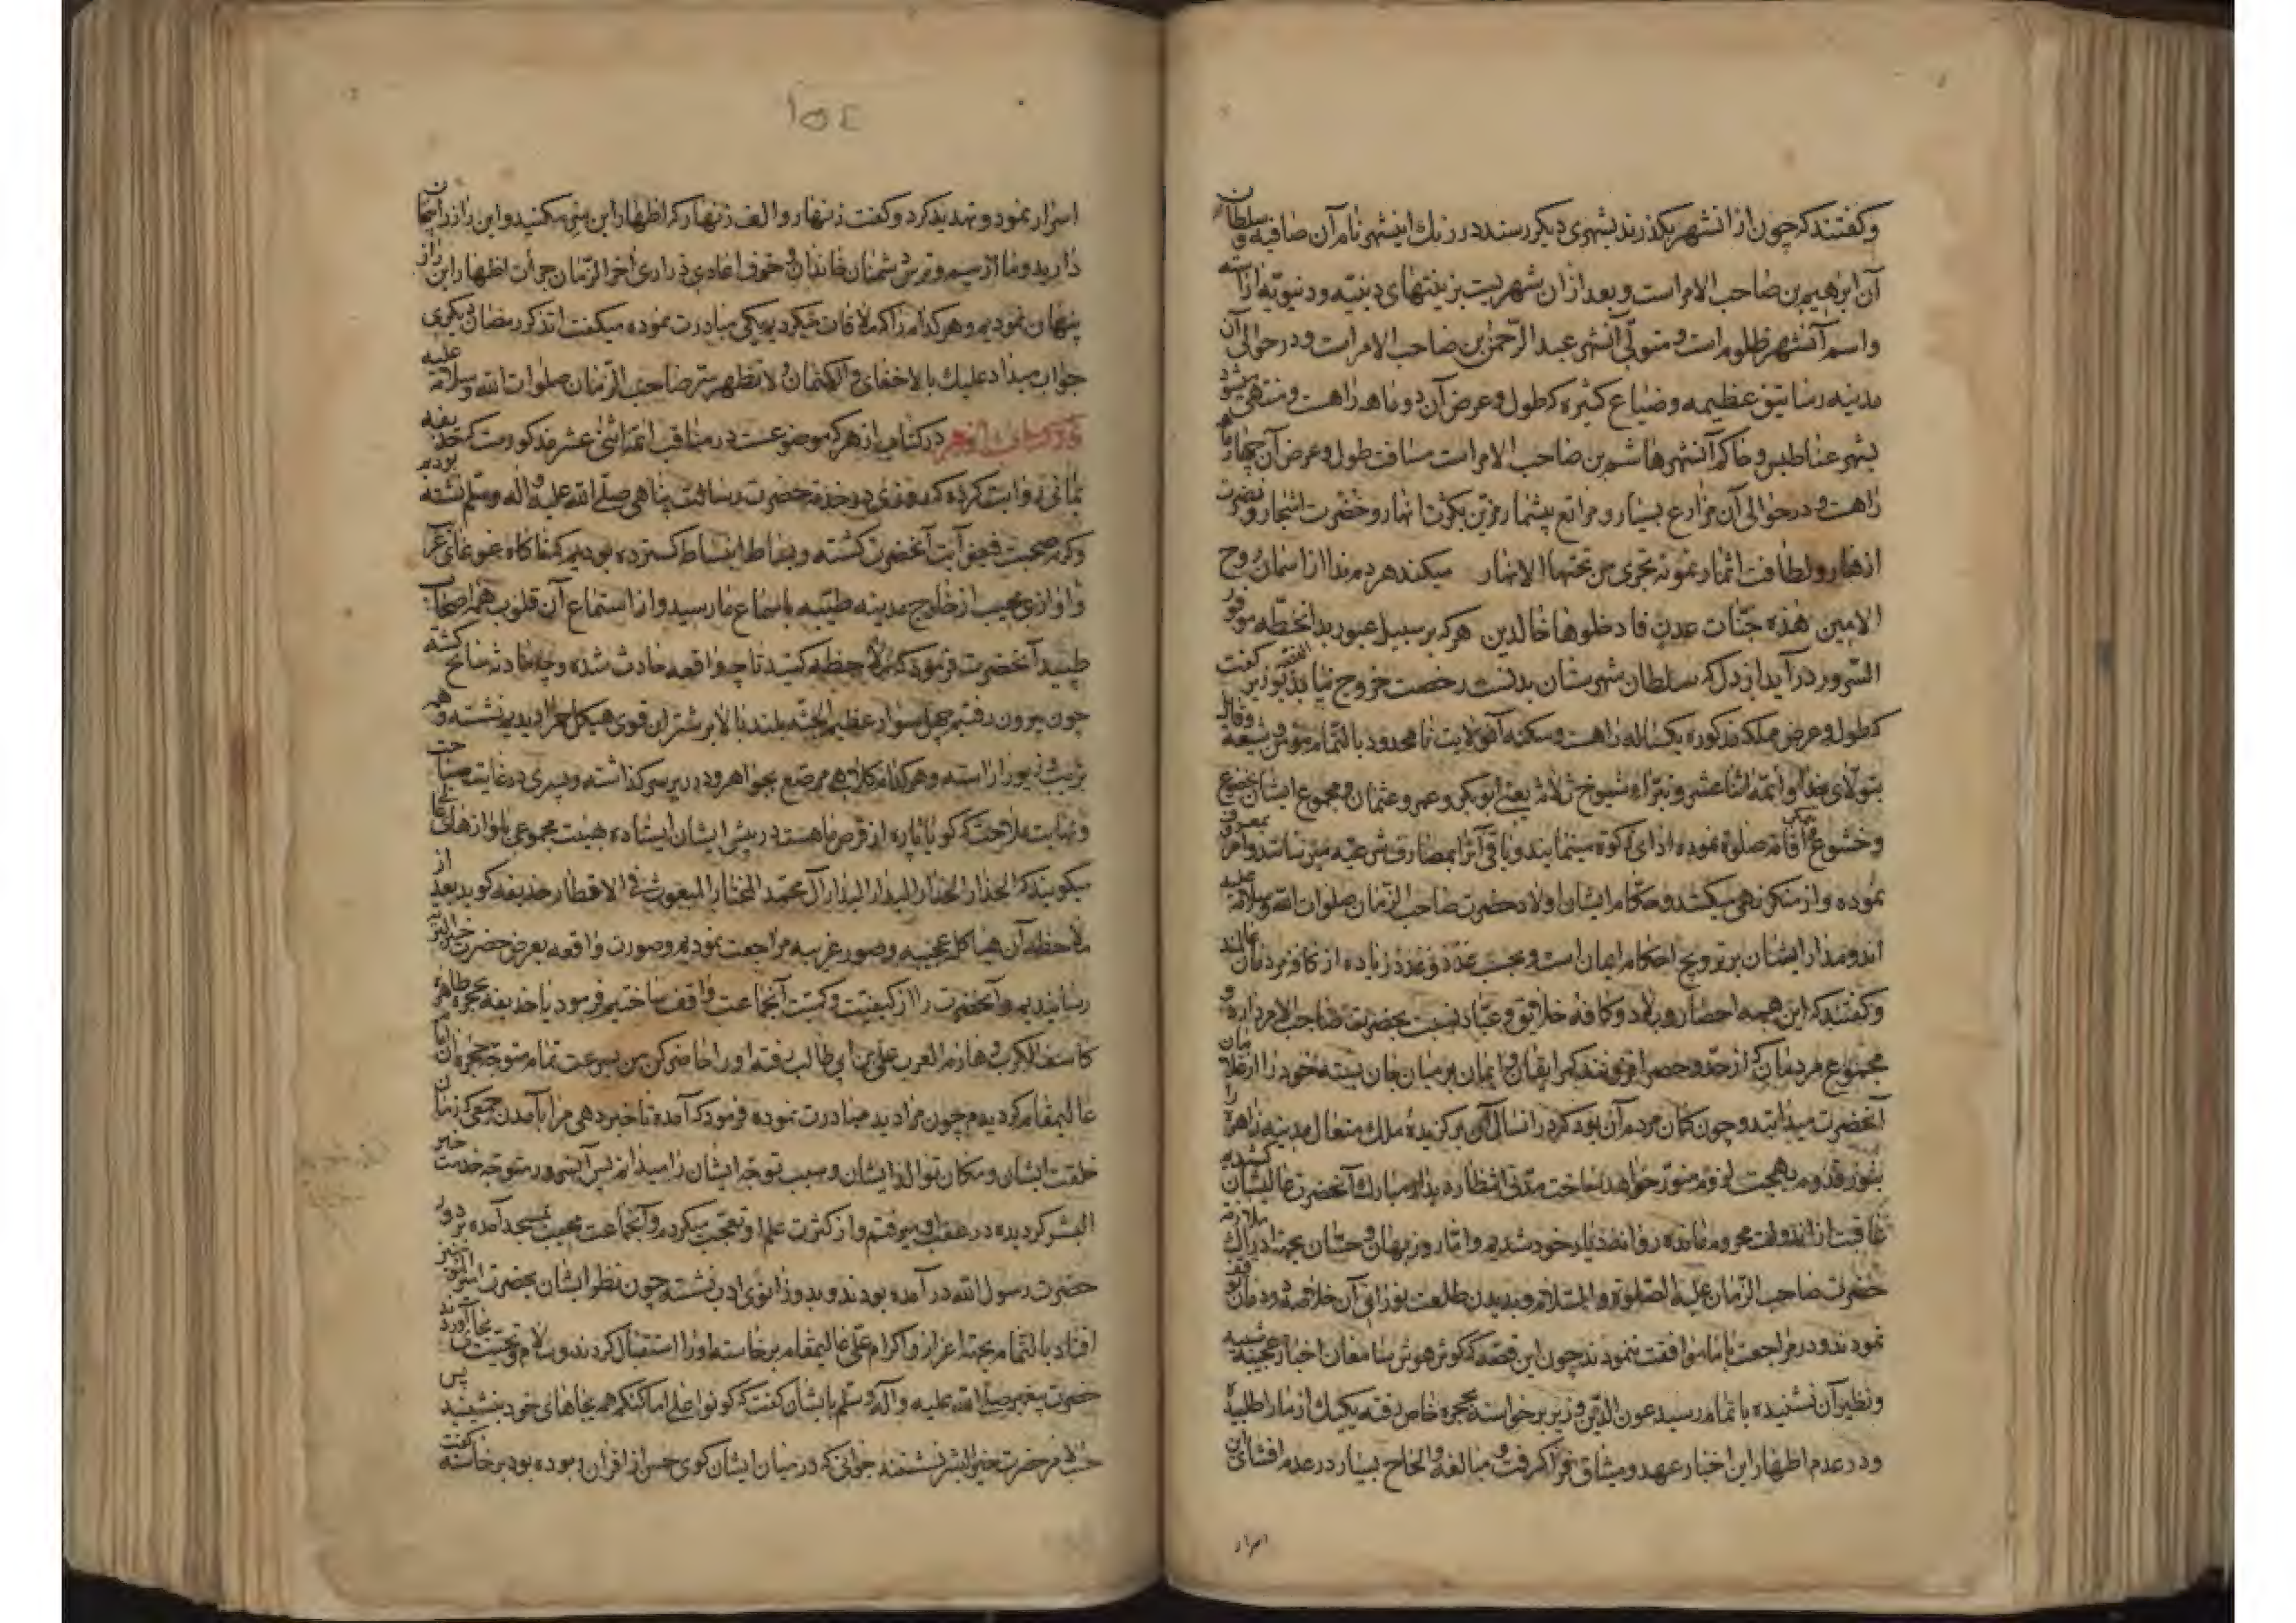 و گفتند که چون از انشهر بگذرند بشهری دیگر رسند در نزدیك اینشهر نام آن صافیه و سلطان
آن ابرهیم بن صاحب الامر است و بعد از ان شهریست بزینتهای دینیه و دنیویه اراسته
و اسم آنشهر ظلوم است و متولّی آنشهر عبد الرّحمن بن صاحب الامر است و در حوالی آن
مدینه رساتیق عظیمه و ضیاع کثیره که طول و عرض آن دو ماهه راهست و منتهی میشود
بشهر عناطیس و حاکم آنشهر هاشم بن صاحب الامر است مسافت طول و عرض آن چهار ماهه
راهست و در حوالی آن مزارع بسیار و مراتع بیشمار مزیّن بکثرت انهار و خضرت اشجار و نضرت
ازهار و لطافت اثمار نمونه تجری من تحتها الانهار میکند هر دم ندا از اسمان روح
الامین هذه جنّات عدن فادخلوها خالدین هر که بر سبیل عبور بدانخطّه موفور
السّرور در آید از دل که سلطان شهرستان بدنست رخصت خروج نیابد القصّه بوزیر گفت
که طول و عرض مملکه مذکوره یکساله راهست و سکنه آنولایت نامحدود بالتّمام مؤمن و شیعه و قایل
بتولّای خدا و ائمّه اثنا عشر و تبرّاء شیوخ ثلاثه یعنی ابو بکر و عمر و عثمان و مجموع ایشان بخضوع
و خشوع اقامه صلوة نموده ادای زکوة مینمایند و باقی آنرا بمصارف شرعیّه میرسانند و امر بمعروف
نموده و از منکر نهی میکنند و حکّام ایشان اولاد حضرت صاحب الزّمان صلوات الله و سلامه علیه
اند و مدار ایشان بر ترویج احکام ایمان است و بحسب عدد و عُدد زیاده از کافّه مردمان عالمند
و گفتند که این همه امصار و بلاد و کافّه خلایق و عباد نسبت بحضرت صاحب الامر دارد و
مجموع مردمان که از حدّ و حصر افزونند کمر ایقان و ایمان بر میان جان بسته خود را از غلامان
آنحضرت میدانند و چون گمان مردم آن بود که در انسال آن برگزیدهٔ ملك متعال مدینه زاهره را
بنور قدوم بهجت لزوم منوّر خواهد ساخت مدّتی انتظار دیدار مبارك آنحضرت عالیشان کشیدیم
عاقبت از اندولت محروم مانده روانه دیار خود شدیم و امّا روزبهان و حسّان بجهة ادراك ملازمت
حضرت صاحب الزّمان علیه الصّلوة و السّلام و بدیدن طلعت نورانی آن خلاصهٔ دودمان توقّف
نمودند و در مراجعت با ما موافقت ننمودند چون این قصّه که گوش هوش سامعان اخبار عجیبه شبیه
و نظیر آن نشنیده باتمام رسید عون الدّین وزیر برخواسته بحجره خاص رفته یکیك از ما را طلبیده
و در عدم اظهار این اخبار عهد و میثاق فرا گرفت و مبالغه و الحاح بسیار در عدم افشای این
اسرار
١٥٤
اسرار نمود و تهدید کرد و گفت زنهار و الف زنهار که اظهار این سرّ مکنید و این راز را پنهان
دارید و ما از بیم و ترس دشمنان خاندان و خوف اعادی ذراری اخر الزّمان جرأت اظهار این راز
پنهان ننمودیم و هر کدام را که ملاقات میکردیم یکی مبادرت نموده میگفت اتذکر رمضان دیگری
جواب میداد علیك بالاخفای و الکتمان و لا تظهر سرّ صاحب الزّمان صلوات الله و سلامه علیه
در کتاب ازهر که موضوعست در مناقب ائمّه اثنی عشر مذکورست که حذیفه
یمانی روایت کرده که روزی در خدمة حضرت رسالت پناهی صلّی الله علیه و آله و سلّم نشسته بودیم
و گرم صحبت فیض آیت آنحضرت گشته و بساط انبساط گسترده بودیم که ناگاه غوغای غریب
و اوازی عجیب از خارج مدینه طیّبه باسماع ما رسید و از استماع آن قلوب همه اصحاب
طپید آنحضرت فرمود که ملاحظه کنید تا چه واقعه حادث شده و چه حادثه سانح گشته
چون بیرون رفتیم چهل سوار عظیم الجثّه بلند بالا بر شتران قوی هیکل دیدیم نشسته و همه
بزینت و زیور اراسته و هر کدام کلاهی مرصّع بجواهر و درر بر سر گذاشته و پسری در غایت صباحت
و نهایت ملاحت که گویا پاره از قرص ماهست در پیش ایشان ایستاده بهیئت مجموعی باوازهای عالی
میگویند که الحذار الحذار البدار البدار آل محمّد المختار المبعوث فی الاقطار حذیفه گوید بعد از
ملاحظه آن هیاکل عجیبه و صور غریبه مراجعت نمودیم و صورت واقعه بعرض حضرت خیر البشر
رسانیدیم و آنحضرت را از کیفیّت و کمیّت آنجماعت واقف ساختیم فرمود یا حذیفه بحجره طاهره
کاشف الکرب و هازم العرب علیّ بن ابی طالب رفته او را حاضر کن من بسرعت تمام متوجّه حجره آن امام
عالیمقام گردیدم چون مرا دید مبادرت نموده فرمود که آمده تا خبر دهی مرا بآمدن جمعی که زمان
خلقت ایشان و مکان توالد ایشان و سبب توجّه ایشان را میدانم پس آنسرور متوجّه خدمت خیر
البشر گردیده در عقب او میرفتم و از کثرت علم او تعجّب میکردم و آنجماعت عجیب بمسجد آمده بر دور
حضرت رسول الله در آمده بودند و بدو زانوی ادب نشسته چون نظر ایشان بحضرت امیر المؤمنین
افتاد بالتّمام بجهة اعزاز و اکرام علی عالیمقام برخاسته او را استقبال کردند و سلام و تحیّت بجا آوردند
حضرت پیغمبر صلّی الله علیه و آله و سلّم بایشان گفت که کونوا علی اماکنکم همه بجاهای خود بنشینید پس
حسب الامر حضرت خیر البشر نشستند جوانی که در میان ایشان گوی حسن از اقران ربوده بود برخاسته گفت